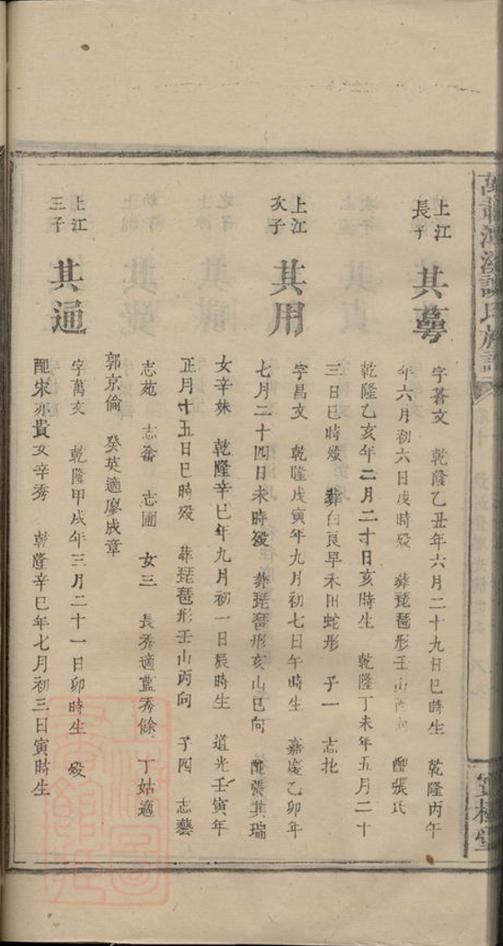 上江長子
其蕚
字蕃文 乾隆乙丑年六月二十九日巳時生 乾隆丙午
年六月初六日戌時殁 葬琵琶形壬山丙向 配張氏
乾隆乙亥年二月二才日亥時生 乾隆丁未年五月二十
三日巳時殁 葬白良早禾田蛇形 子一 志
上江次子
其用
字昌文 乾隆戊寅年九月初七日午時生 嘉慶乙卯年
七月二十四日未時殁 葬琵琶形亥山巳向 配張其瑞
女辛妹 乾隆辛巳年九月初一日辰時生 道光壬寅年
正月十五日巳時殁 葬琵琶形壬山丙向 子四 志藝
志苑 志蕃 志圃 女三 長秀適藍秀餘 丁姑適
郭京倫 癸英適廖成章
上江三子
其通
字萬文 乾隆甲戌年三月二十一日卯時生 殁
配宋亦貴女辛秀 乾隆辛巳年七月初三日寅時生